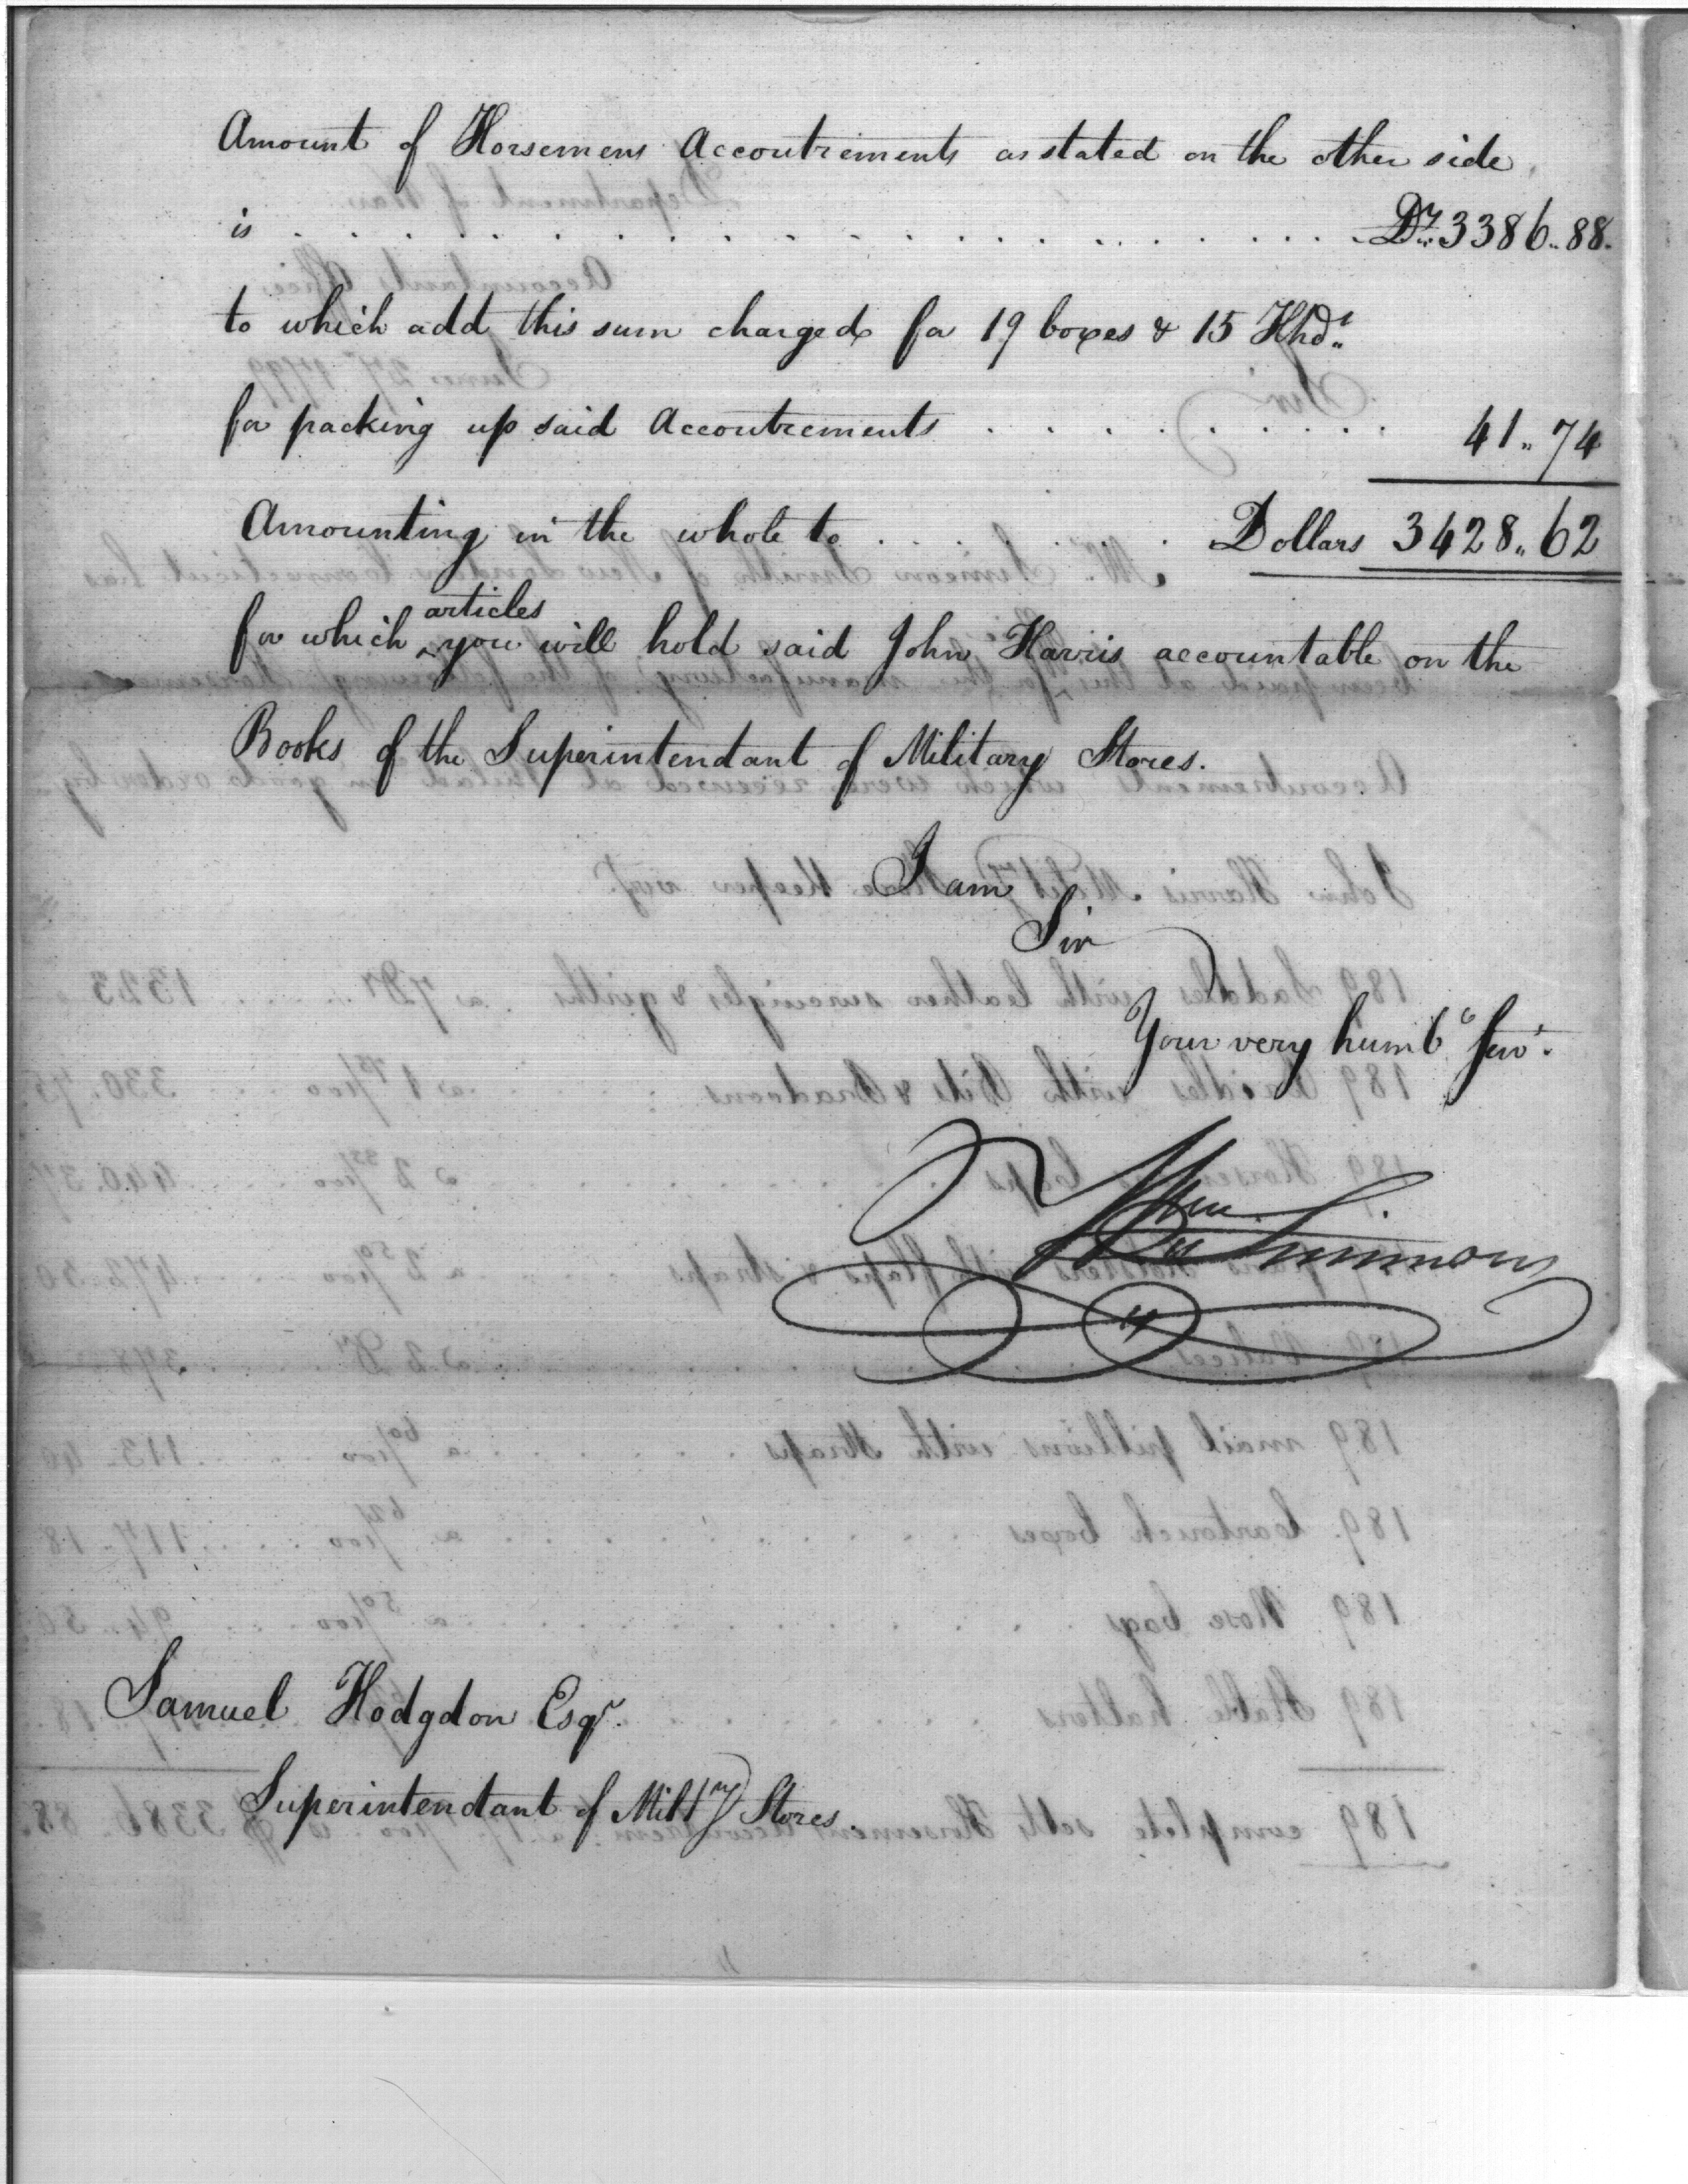 Amount of Horsemens Accoutrements as stated on the other side
is . . . . . . . . . . . . . . . . . . . . Drs. 3386..88.
to which add this sum charged for 19 boxes & 15 Hhds.
for packing up said Accoutrements . . . . . . . . 41..74
Amounting in the whole to . . . . . . Dollars 3428..62
articles
for which ^ you will hold said John Harris accountable on the
Books of the Superintendant of Military Stores.
I am
Sir
Your very humbe Servt.
Wm. Simmons
Samuel Hodgdon Esqr.
Superintendant of Milty Stores.